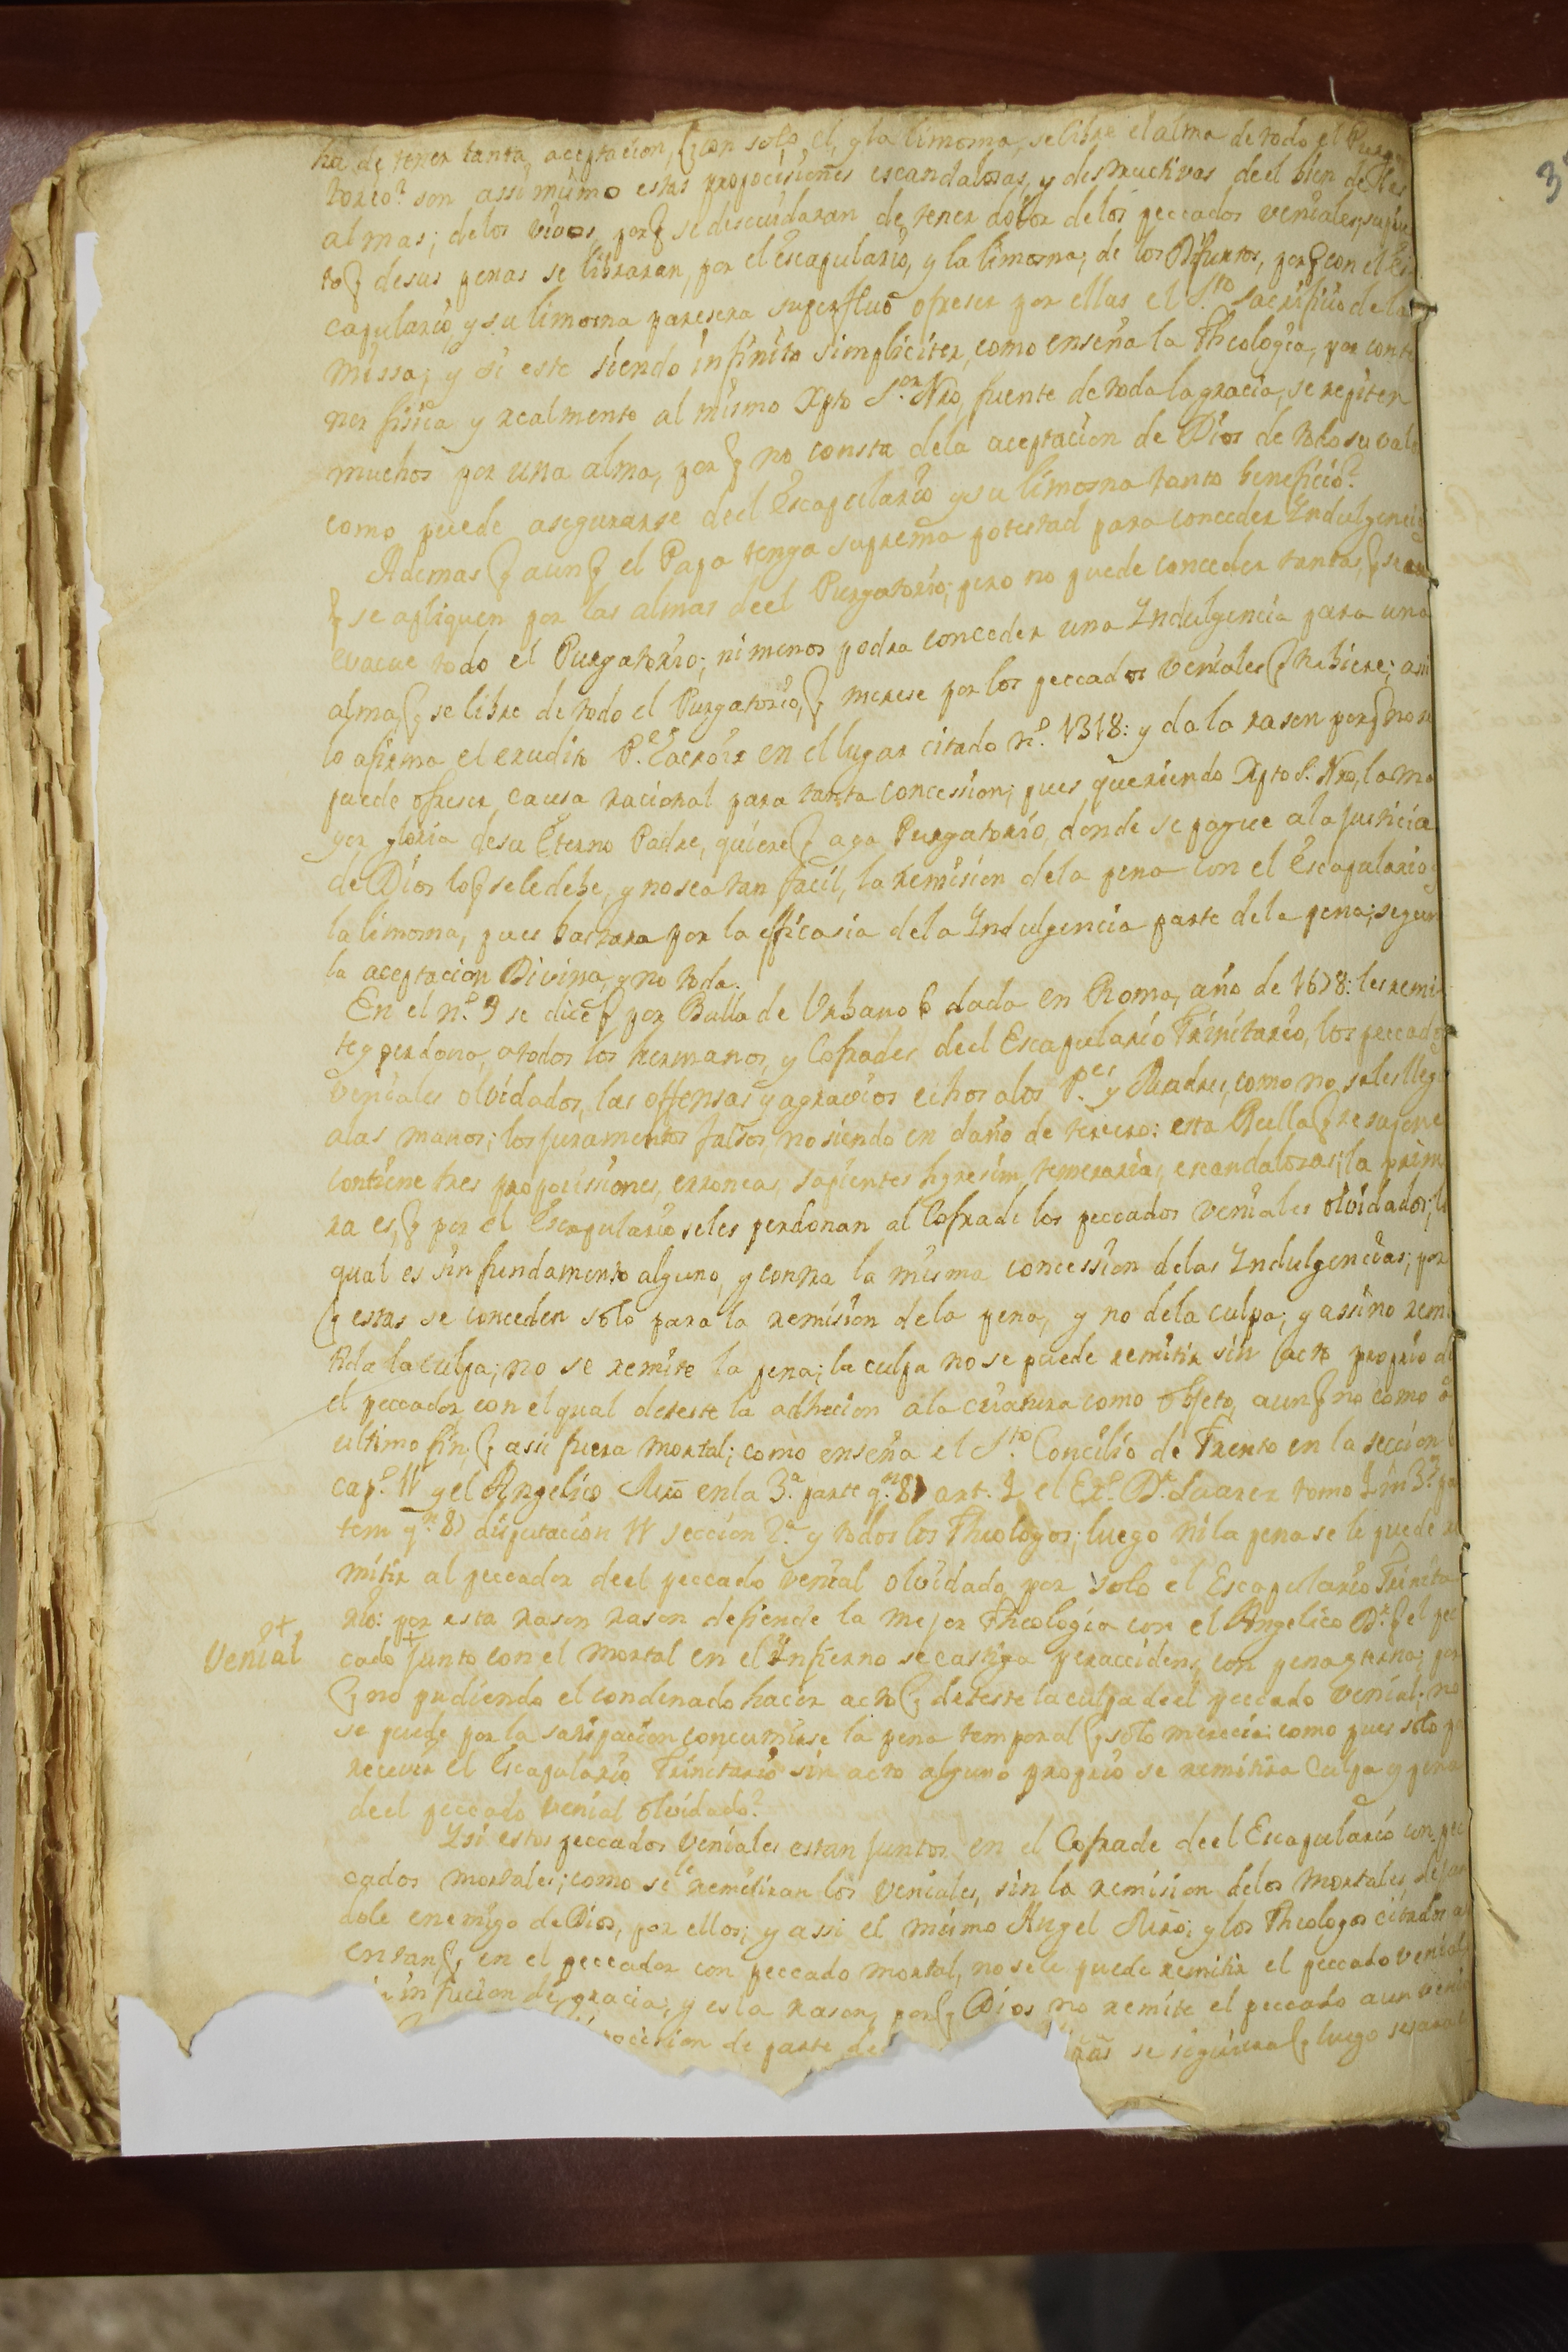 ha de tener tanta aceptacion, q con solo el, y la limosna, se libre el alma de todo el Purga
torio? son assi mismo estas propocisiones escandalosas, y destructivas deel bien de las
almas; de los vivos, por q se descuidaran de tener dolor de los peccados veniales,
to q de sus penas se libraran, por el escapulario, y la limosna; de los Difuntos, por q con el Es
capulario y su limosna paresera superfluo ofreser por ellas el S.to Sacrificio de la
missa; y si este siendo infinito simpliciter, como enseña la Theologia, por conte
ner fisica y realmente al mismo Xpto S.or Nro, fuente de toda la gracia, se repiten
muchos por una alma, por q no consta dela aceptacion de Dios de todo su valo
como puede asegurarse deel Escapulario y su limosna tanto beneficio?
Ademas q aun q el Papa tenga suprema potestad para conceder Indulgencias
q se apliquen por las almas deel Purgatorio; pero no puede conceder tantas, q se
evacue todo el Purgatorio; ni menos podra conceder una Indulgencia para una
alma, q se libre de todo el Purgatorio, q merese por los peccados veniales q hubiere; assi
lo afirma el erudito P.e Lacroix en el lugar citado n.o 1318: y da la rason por q no se
puede ofreser causa racional para tanta concession; pues queriendo Xpto S. Nro, la ma
yor gloria de su Eterno Padre, quiere q aga Purgatorio, donde se pague a la justicia
de Dios lo q se le debe, y no sea tan facil, la remision dela pena con el Escapulario y
la limosna, pues bastara por la efficasia dela Indulgencia parte dela pena; segun
la aceptacion Divina, y no toda.
En el n.o 9 se dice q por Bulla de Urbano 6 dada en Roma, año de 1678: les remi
te y perdona, a todos los hermanos, y Cofrades deel Escapulario Trinitario, los peccados
veniales olvidados, las offensas y agravios echos a los P.es y Madres, como no se les llegue
a las manos; los juramentos falsos, no siendo en daño de tercero: esta Bulla q se supone
contiene tres propocisiones, erroneas, sapientes hyresim, temerarias, escandalosas; la prime
ra es, q por el Escapulario se les perdonan al Cofrade los peccados veniales olvidados; lo
qual es sin fundamento alguno, y contra la misma concession delas Indulgencias; por
q estas se conceden solo para la remision dela pena, y no dela culpa; y assi no remi
tida la culpa; no se remite la pena; la culpa no se puede remitir sin acto proprio de
el peccador, con el qual deteste la adhecion a la criatura como objeto, aun q no como a
ultimo fin, q assi fuera mortal; como enseña el S.to Concilio de Trento en la seccion
cap.o y el Angelico Mrō en la 3.a parte q.n 87 art. 1 el Ex.o D.r Suarez tomo in 3.am par
tem q.n 87 disputacion 11 seccion 2.a y todos los Theologos; luego ni la pena se le puede re
mitir al peccador deel peccado venial olvidado por solo el Escapulario Trinita
rio: por esta rason rason defiende la mejor Theologia con el Angelico D.r q el pec
cado + junto con el mortal en el Infierno se castiga peraccidens, con pena eterna; por
q no pudiendo el condenado hacer acto q deteste la culpa deel peccado venial; no
se puede por la satispacion concumirse la pena temporal q solo merecia; como pues solo por
recevir el Escapulario Trinitario sin acto alguno proprio se remitira Culpa y pena
deel peccado venial olvidado?
Y si estos peccados veniales estan juntos en el Cofrade deel Escapulario con pec
cados mortales; como se le remitiran los veniales, sin la remision delos mortales,
dole enemigo de Dios, por ellos; y assi el mismo Angel Mrō; y los Theologos citados
q en el peccador con peccado mortal, no se le puede remitir el peccado venial
infucion de gracia; y es la rason, por q Dios no remite el peccado aun venial
de parte deel se siguiera q luego
+
Venial